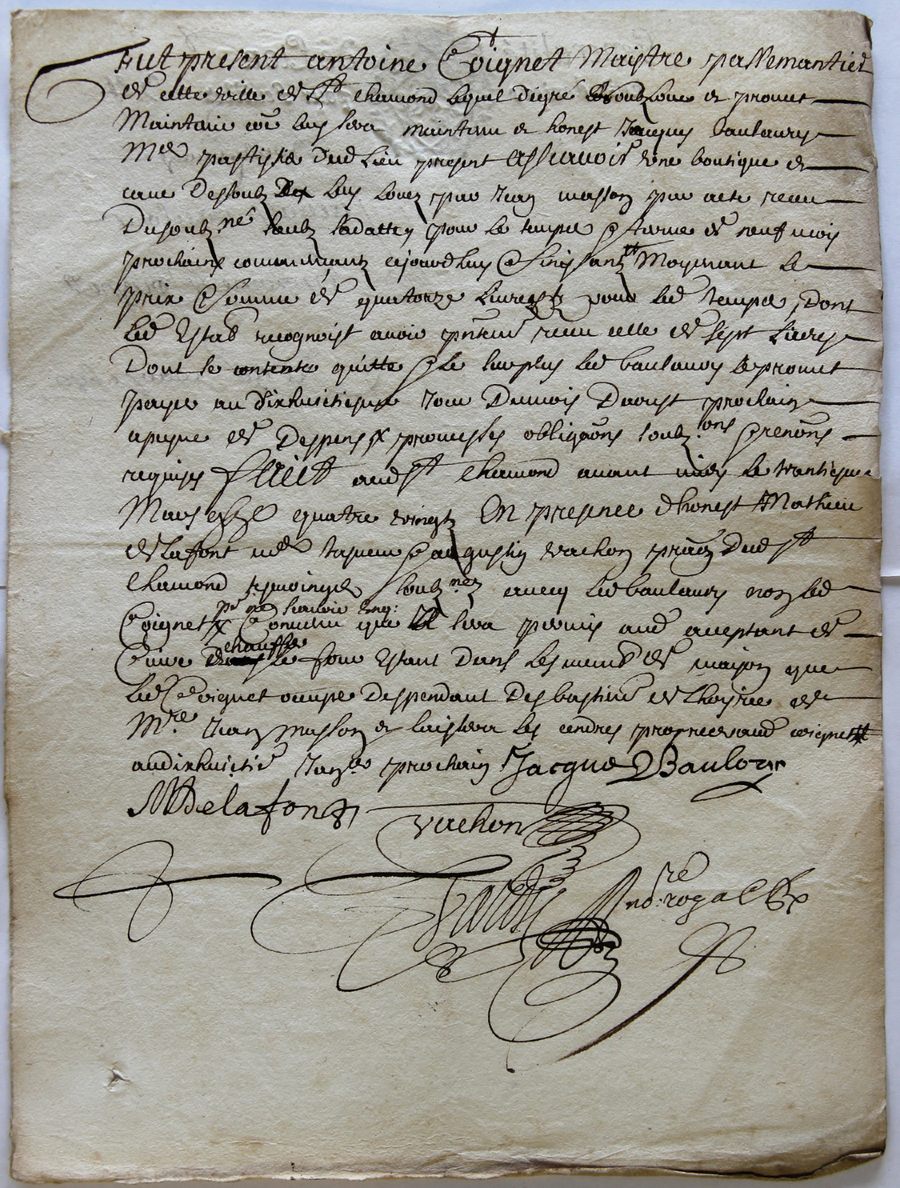 Fut present antoine Coignet Maistre passemantier
de cette ville de St chamond lequel de gré soubzloue et promet
Maintenir et luy sera maintenu et honest Jacques baulaurs
Mre pastissier dud lieu present assauoir vne boutique et
caue dessoubz luy louez par Jean masson par acte receu
Du soubzné soubz sa datte pour le temps & terme de neuf mois
prochains commencants cejourdhuy & finissantz Moyenant le
prix & somme de quatorze Liures pour led temps, dont
led estab recognoist auoir receu celle de sept Liures
Dont se contente quitte & le surplus led baulaurs le promet
payer au dixhuictiesme Jour Du mois Daoust prochain
a peyne de Despens promesses obligaons soubz.ons & renons
requises Faict aud St chamond auant midy le trantiesme
Mars quatre vingtz En presence d'honest Mathieu
de Lafont & augustin vachon dud St
chamond tesmoings soubz.nez auecq led baulaurs non led
Coignet pr ne scauoir enq: Conuenu que sera permis aud acceptant de
Cuire chauffer le four estant Dans les mend de maison que
Led Coignet occupe Despendant des bastimt de Lhoirie de
Mre Jean masson et laissera les cendres propres aud coignet
au dixhuictie prochain Jacque Baulour
M Delafont
vachon
nore royal